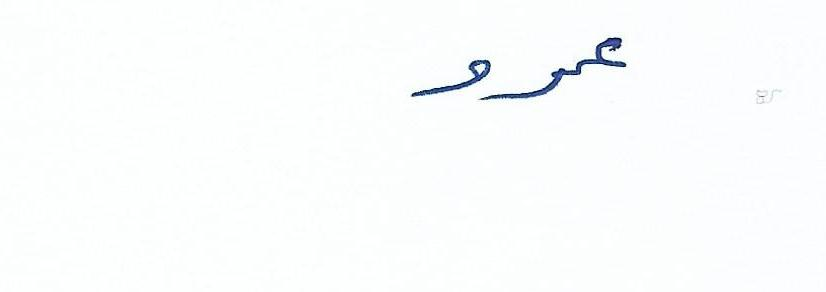 عمرو